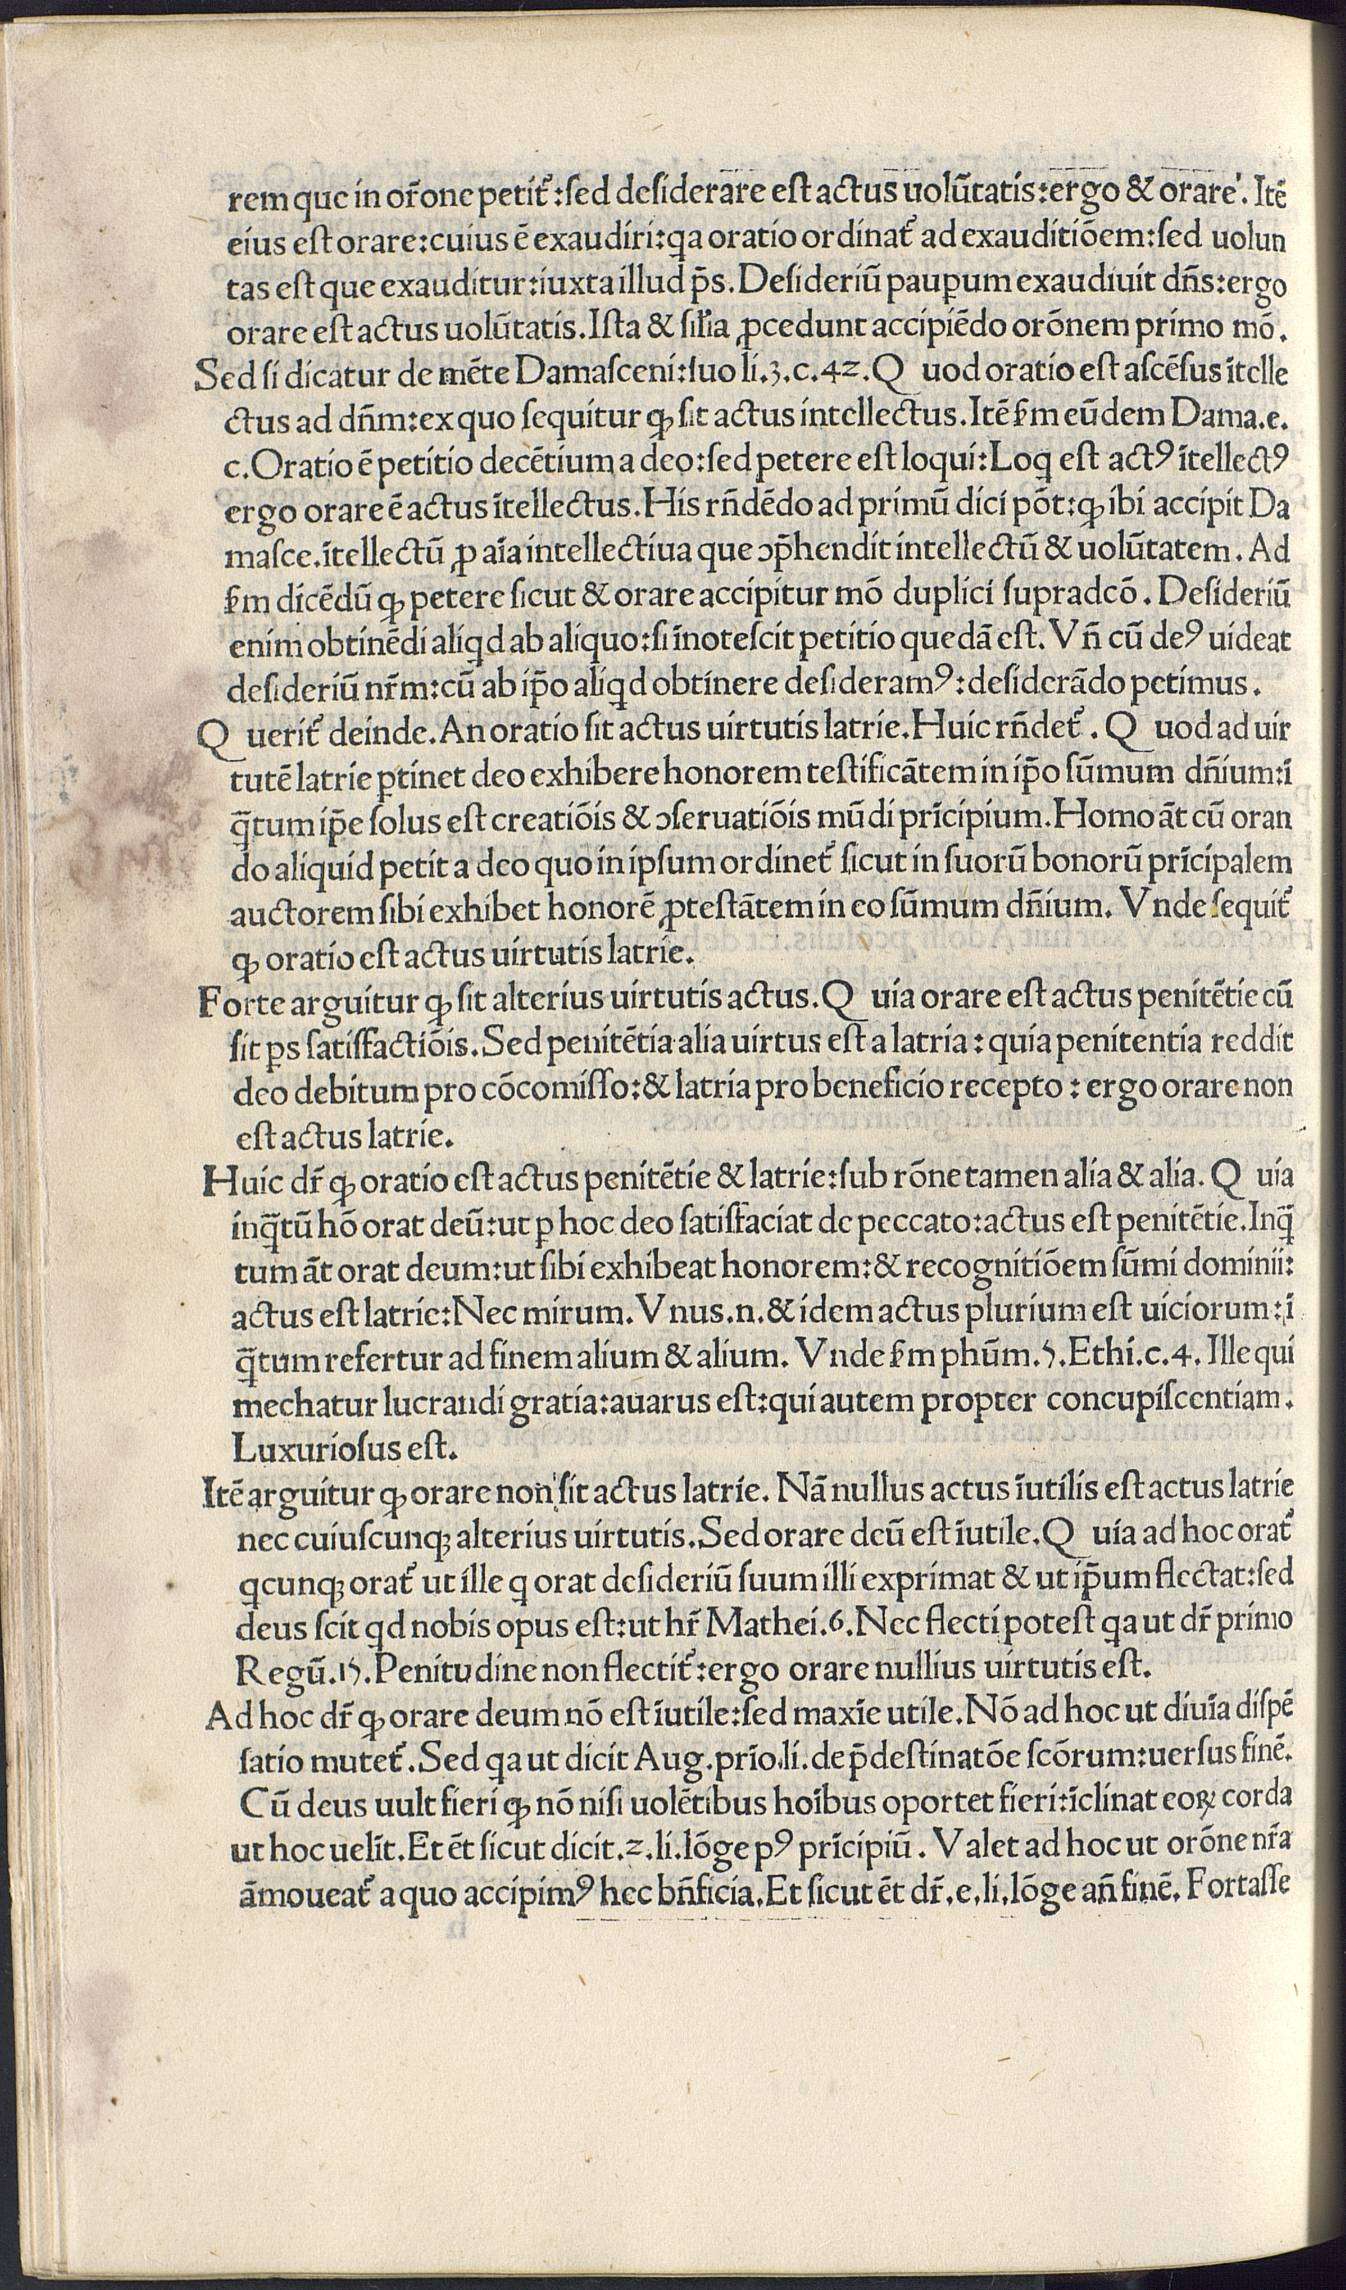 rem que in or̃one petit᷑:sed desiderare est actus uolũtatis:ergo & orare. Itẽ
eius est orare:cuius ẽ exaudiri:qa oratio ordinat᷑ ad exauditiõem:sed uolun
tas est que exauditur:iuxta illud p̃s. Desideriũ paup̱um exaudiuit dñs:ergo
orare est actus uolũtatis. Ista & silia ꝓcedunt accipiẽdo orõnem primo mõ.
Sed si dicatur de mẽte Damasceni:suo li.3.c.42. Quod oratio est ascẽsus ĩtelle
ctus ad dñm:ex quo sequitur ꝙ sit actus intellectus. Itẽ s̃m eũdem Dama.e.
c. Oratio ẽ petitio decẽtium a deo:sed petere est loqui:Loq est actꝰ ĩtellectꝰ
ergo orare ẽ actus ĩtellectus. His rñdẽdo ad primũ dici põt:ꝙ ibi accipit Da
masce.ĩtellectũ ꝓ aĩa intellectiua que ↄp̃hendit intellectũ & uolũtatem. Ad
s̃m dicẽdũ ꝙ petere sicut & orare accipitur mõ duplici supradcõ. Desideriũ
enim obtinẽdi aliqd ab aliquo:si ĩnotescit petitio quedã est. Vñ cũ deꝰ uideat
desideriũ nr̃m:cũ ab ip̃o aliqd obtinere desideramꝰ:desiderãdo petimus.
Querit᷑ deinde. An oratio sit actus uirtutis latrie. Huic rñdet᷑. Quod ad uir
tutẽ latrie ꝑtinet deo exhibere honorem testificãtem in ip̃o sũmum dñium:ĩ
q̃tum ip̃e solus est creatiõis & ↄseruatiõis mũdi prĩcipium. Homo ãt cũ oran
do aliquid petit a deo quo in ipsum ordinet᷑ sicut in suorũ bonorũ prĩcipalem
auctorem sibi exhibet honorẽ ꝓtestãtem in eo sũmum dñium. Vnde sequit᷑
ꝙ oratio est actus uirtutis latrie.
Forte arguitur ꝙ sit alterius uirtutis actus. Quia orare est actus penitẽtie cũ
sit ꝑs satisfactiõis. Sed penitẽtia alia uirtus est a latria: quia penitentia reddit
deo debitum pro cõcomisso:& latria pro beneficio recepto: ergo orare non
est actus latrie.
Huic dr̃ ꝙ oratio est actus penitẽtie & latrie:sub rõne tamen alia & alia. Quia
inq̃tũ hõ orat deũ:ut ꝑ hoc deo satisfaciat de peccato:actus est penitẽtie. Inq̃
tum ãt orat deum:ut sibi exhibeat honorem:& recognitiõem sũmi dominii:
actus est latrie:Nec mirum. Vnus.n.& idem actus plurium est uiciorum:ĩ
q̃tum refertur ad finem alium & alium. Vnde s̃m phũm.5.Ethi.c.4. Ille qui
mechatur lucrandi gratia:auarus est:qui autem propter concupiscentiam.
Luxuriosus est.
Itẽ arguitur ꝙ orare non sit actus latrie. Nã nullus actus ĩutilis est actus latrie
nec cuiuscunqꝫ alterius uirtutis. Sed orare deũ est ĩutile. Quia ad hoc orat᷑
qcunqꝫ orat᷑ ut ille q orat desideriũ suum illi exprimat & ut ip̃um flectat:sed
deus scit qd nobis opus est:ut hr̃ Mathei.6. Nec flecti potest qa ut dr̃ primo
Regũ.15. Penitudine non flectit᷑:ergo orare nullius uirtutis est.
Ad hoc dr̃ ꝙ orare deum nõ est ĩutile:sed maxĩe utile. Nõ ad hoc ut diuĩa dispẽ
satio mutet᷑. Sed qa ut dicit Aug.prĩo.li.de p̃destinatõe scõrum:uersus finẽ.
Cũ deus uult fieri ꝙ nõ nisi uolẽtibus hoĩbus oportet fieri:ĩclinat eoꝝ corda
ut hoc uelit. Et ẽt sicut dicit.2.li.lõge pꝰ prĩcipiũ. Valet ad hoc ut orõne nr̃a
ãmoueat᷑ a quo accipimꝰ hec bñficia. Et sicut ẽt dr̃.e.li.lõge añ finẽ. Fortasse